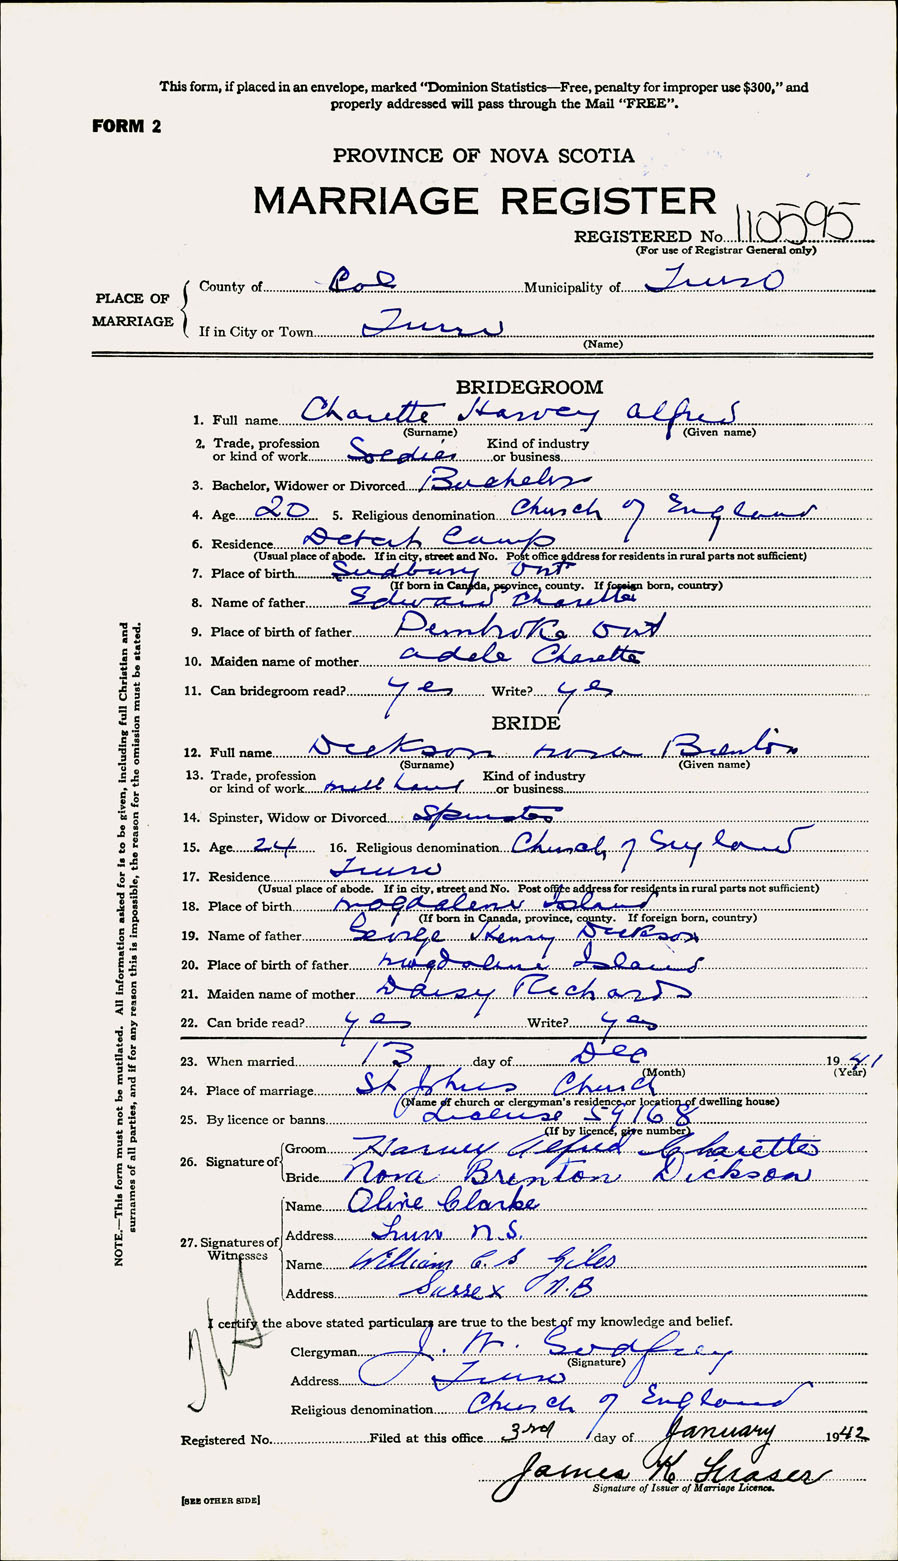 This form, if placed in an envelope, marked “Dominion Statistics—Free, penalty for improper use $300,” and
properly addressed will pass through the Mail “FREE”.
FORM 2
PROVINCE OF NOVA SCOTIA
MARRIAGE REGISTER
REGISTERED No. 110595
(For use of Registrar General only)
PLACE OF MARRIAGE
County of Col Municipality of Truro
If in City or Town Truro
(Name)
BRIDEGROOM
1. Full name Charette Harvey Alfred
(Surname) (Given name)
2. Trade, profession or kind of work Soldier Kind of industry or business
3. Bachelor, Widower or Divorced Bachelor
4. Age 20 5. Religious denomination Church of England
6. Residence Debert Camp
(Usual place of abode. If in city, street and No. Post office address for residents in rural parts not sufficient)
7. Place of birth Sudbury Ont
(If born in Canada, province, county. If foreign born, country)
8. Name of father Edward Charette
9. Place of birth of father Pembroke Ont
10. Maiden name of mother Adele Charette
11. Can bridegroom read? yes Write? yes
BRIDE
12. Full name Dickson Nora Brenton
(Surname) (Given name)
13. Trade, profession or kind of work mill hand Kind of industry or business
14. Spinster, Widow or Divorced Spinster
15. Age 24 16. Religious denomination Church of England
17. Residence Truro
(Usual place of abode. If in city, street and No. Post office address for residents in rural parts not sufficient)
18. Place of birth Magdalene Island
(If born in Canada, province, county. If foreign born, country)
19. Name of father George Henry Dickson
20. Place of birth of father Magdalene Island
21. Maiden name of mother Daisy Richards
22. Can bride read? yes Write? yes
23. When married 13 day of Dec 1941
(Month) (Year)
24. Place of marriage St Johns Church
(Name of church or clergyman's residence or location of dwelling house)
25. By licence or banns License 59168
(If by licence, give number)
26. Signature of
Groom Harvey Alfred Charette
Bride Nora Brenton Dickson
27. Signatures of Witnesses
Name Olive Clarke
Address Truro N.S.
Name William C. S Giles
Address Sussex N.B
I certify the above stated particulars are true to the best of my knowledge and belief.
Clergyman J. W. Godfrey
(Signature)
Address Truro
Religious denomination Church of England
Registered No. Filed at this office 3rd day of January 1942
James K Fraser
Signature of Issuer of Marriage Licence.
[SEE OTHER SIDE]
NOTE.—This form must not be mutilated. All information asked for is to be given, including full Christian and
surnames of all parties, and if for any reason this is impossible, the reason for the omission must be stated.